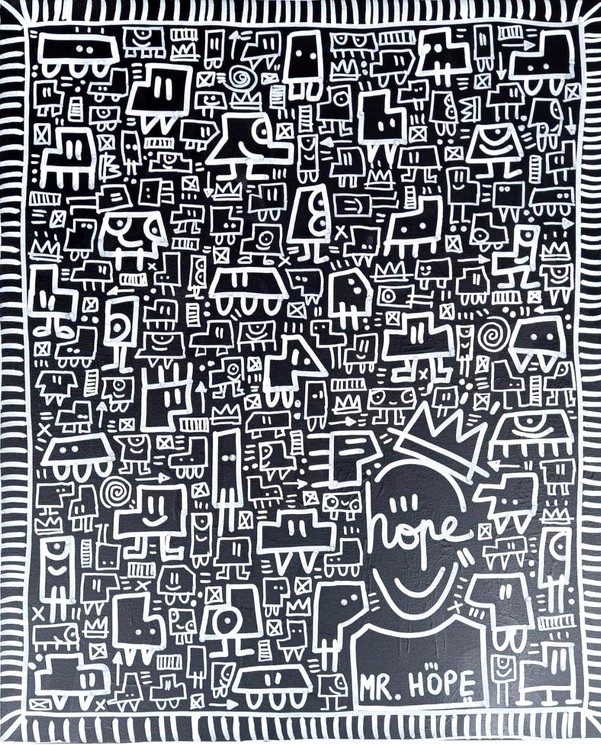 hope
MR. HÖPE